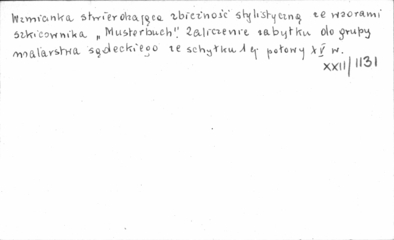 Wzmianka stwierdzająca zbieżność stylistyczną ze wzorami
szkicownika „Musterbuch". Zaliczenie zabytku do grupy
malarstwa sądeckiego ze schyłku 1 ej połowy XV w.
XXII/1131